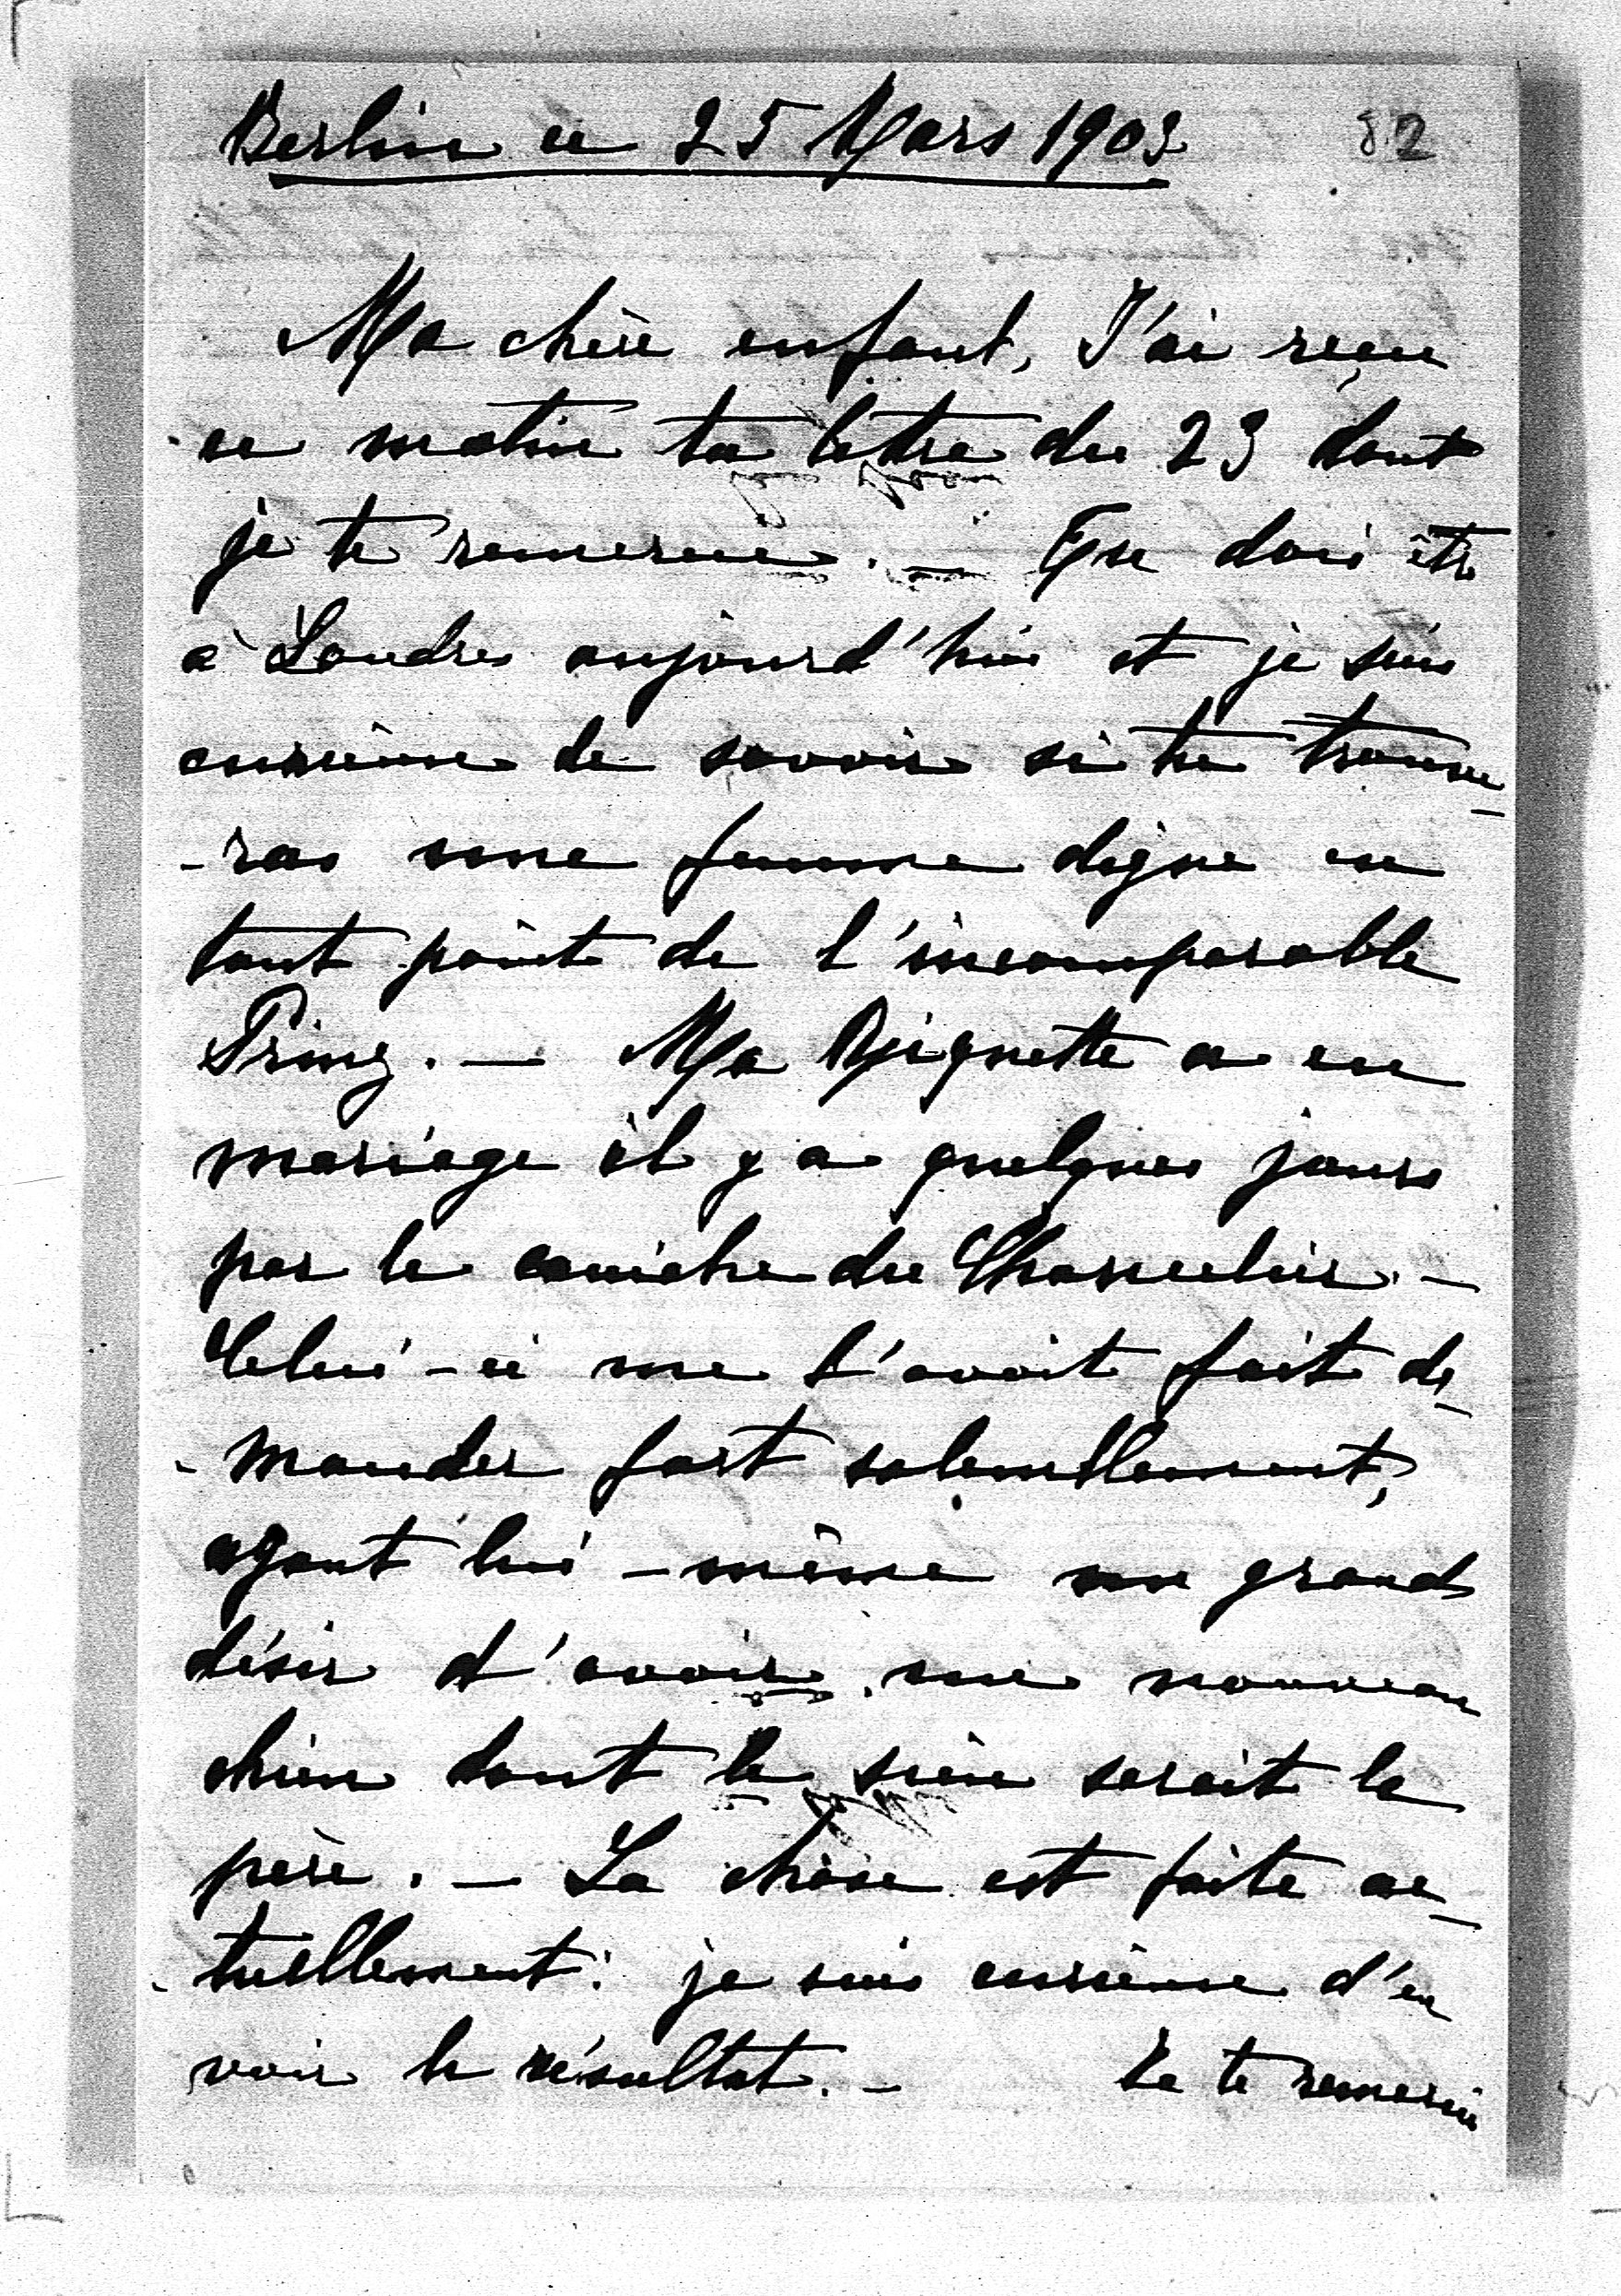 Berlin ce 25 Mars 1903 82
Ma chère enfant, J'ai reçu
ce matin ta lettre du 23 dont
je te remercie. — Tu dois être
à Londres aujourd'hui et je suis
curieuse de savoir si tu trouve-
-ras une femme digne en
tout point de l'incomparable
Prinz. — Ma Mignette a eu
mariage il y a quelques jours
par le caniche du Chancelier. —
Celui-ci me l'avait fait de-
-mander fort solennellement,
ayant lui-même un grand
désir d'avoir un nouveau
chien dont le sien serait le
père. — La chose est faite ac-
-tuellement: je suis curieuse d'en
voir le résultat. — Je te remercie